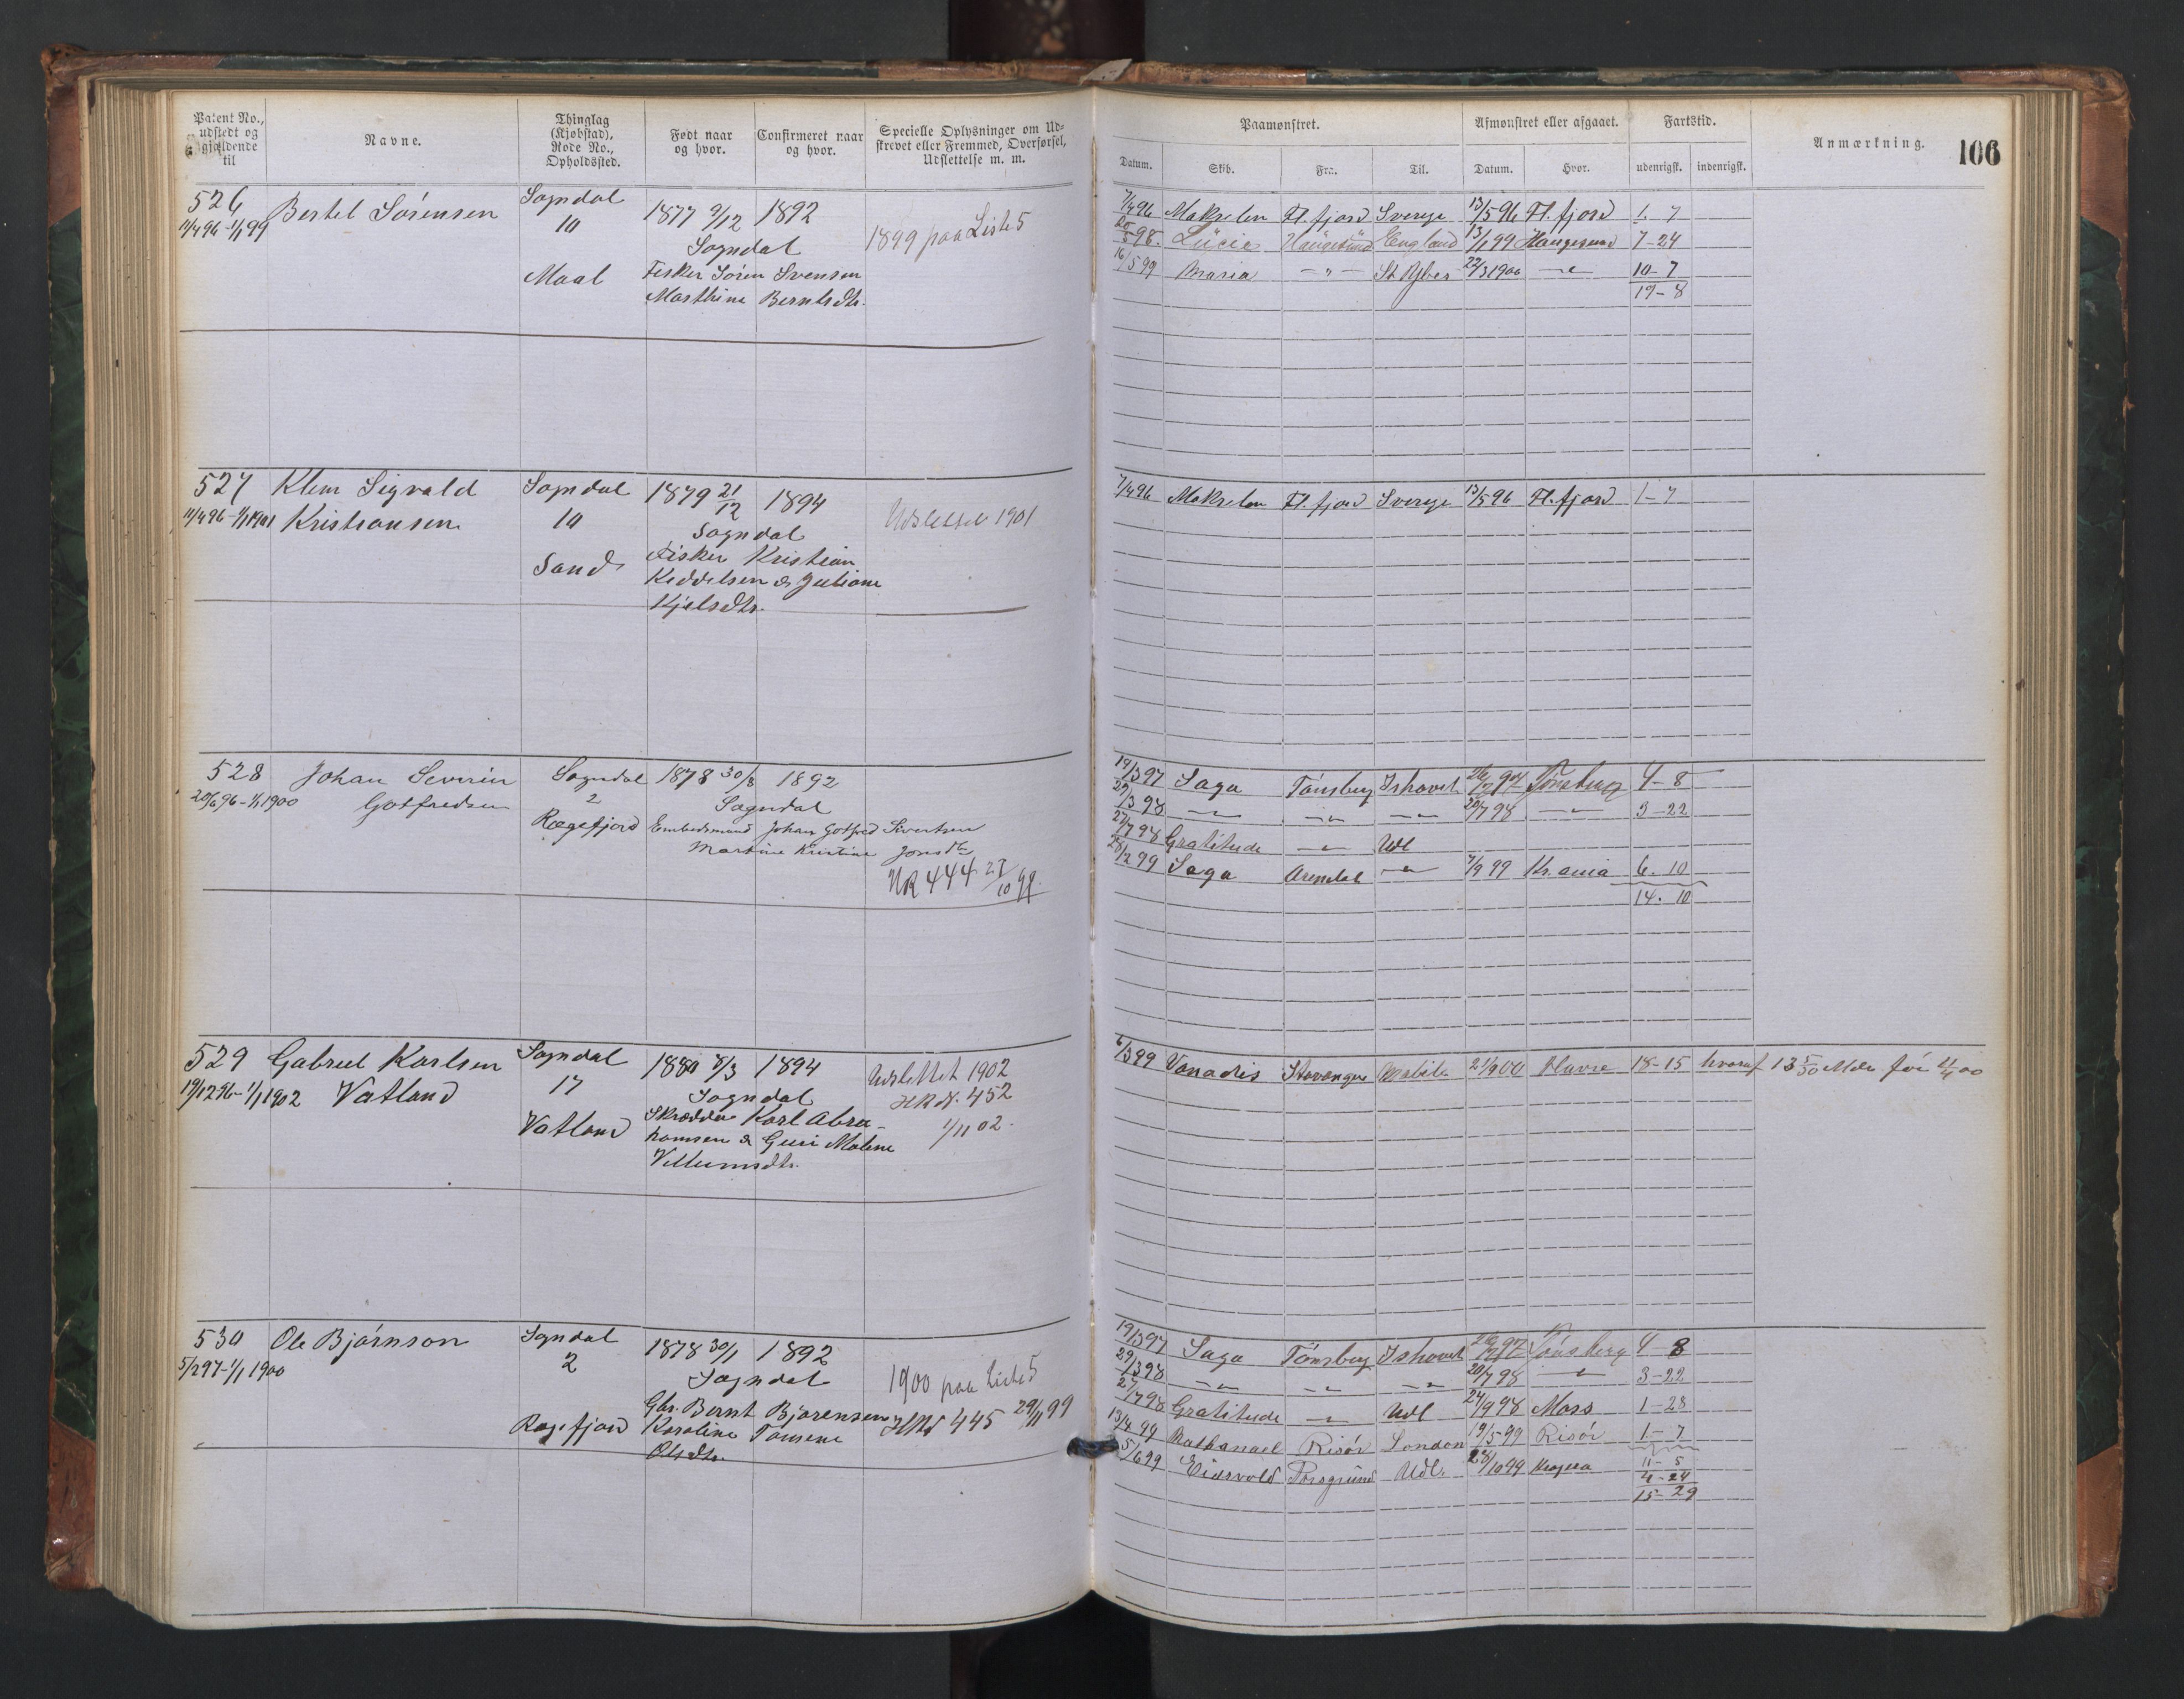 Patent No., udstedt og gjældende til
Navne.
Thinglag (Kjøbstad), Rode No., Opholdssted.
Født naar og hvor.
Confirmeret naar og hvor.
Specielle Oplysninger om Udskrevet eller Fremmed, Overførsel, Udslettelse m. m.
Paamønstret.
Afmønstret eller afgaaet.
Fartstid.
Anmærkning.
106
Datum. Skib. Fra. Til. Datum. Hvor. udenrigsk. indenrigsk.
526 Bertel Sörensen Sogndal 1877 9/12 1892
11/4 96 - 1/1 99 10 Sogndal 1899 paa Liste 5
Maal Fisker Sören Svensen
Marthine Berntsdtr.
7/4 96 Makrelen Fl. fjord Sverige 13/5 96 Fl. fjord 1 - 7
98 Lücia Haugesund England 13/1 99 Haugesund 7 - 24
16/5 99 Maria - " - St Ybes 22/3 1900 - " - 10 - 7
19 - 8
527 Klem Sigvald Sogndal 1879 21/12 1894
11/4 96 - 1/1 1901 Kristiansen 10 Sogndal Udslettet 1901
Sand Fisker Kristian
Keddelsen & Juliane
Kjelsdtr.
7/4 96 Makrelen Fl. fjord Sverige 13/5 96 Fl. fjord 1 - 7
528 Johan Severin Sogndal 1878 30/8 1892
20/6 96 - 1/1 1900 Gotfredsen 2 Sogndal
Rægefjord Embedsmand Johan Gotfred Sivertsen
Martine Kristine Jonsdtr
HR 444 27/10 99.
19/3 97 Saga Tönsberg Ishavet Tönsberg 4 - 8
29/3 98 - " - - " - - " - 20/7 98 - " - 3 - 22
27/7 98 Gratitude - " - Udl
28/2 99 Saga Arendal - " - 7/9 99 Kr.ania 6. 10
14. 10
529 Gabriel Karlsen Sogndal 1880 8/3 1894 Udslettet 1902
19/12 96 - 1/1 1902 Vatland 17 Sogndal HR N. 452
Vatland Skrædder Karl Abra- 1/11 02.
hamsen & Guri Malene
Villumsdtr.
6/3 99 Vanadis Stavanger Mobile 21/9 00 Havre 18 - 15 hvoraf 13 5/30 Mdr för 11/4 00
530 Ole Björnson Sogndal 1878 30/1 1892
5/2 97 - 1/1 1900 2 Sogndal 1900 paa Liste 5
Gbr. Bernt Bjørensen HR 445 29/11 99
Rægefjord Karoline Tomene
Olsdtr.
19/3 97 Saga Tönsberg Ishavet Tönsberg 4 - 8
29/3 98 - " - - " - - " - 20/7 98 - " - 3 - 22
27/7 98 Gratitude - " - Udl 24/9 98 Moss 1 - 28
13/4 99 Nathanael Risör London 19/5 99 Risör 1 - 7
11 - 5
5/6 99 Eidsvold Porsgrund Udl. 28/10 99 Kragerø 4 - 24
15 - 29